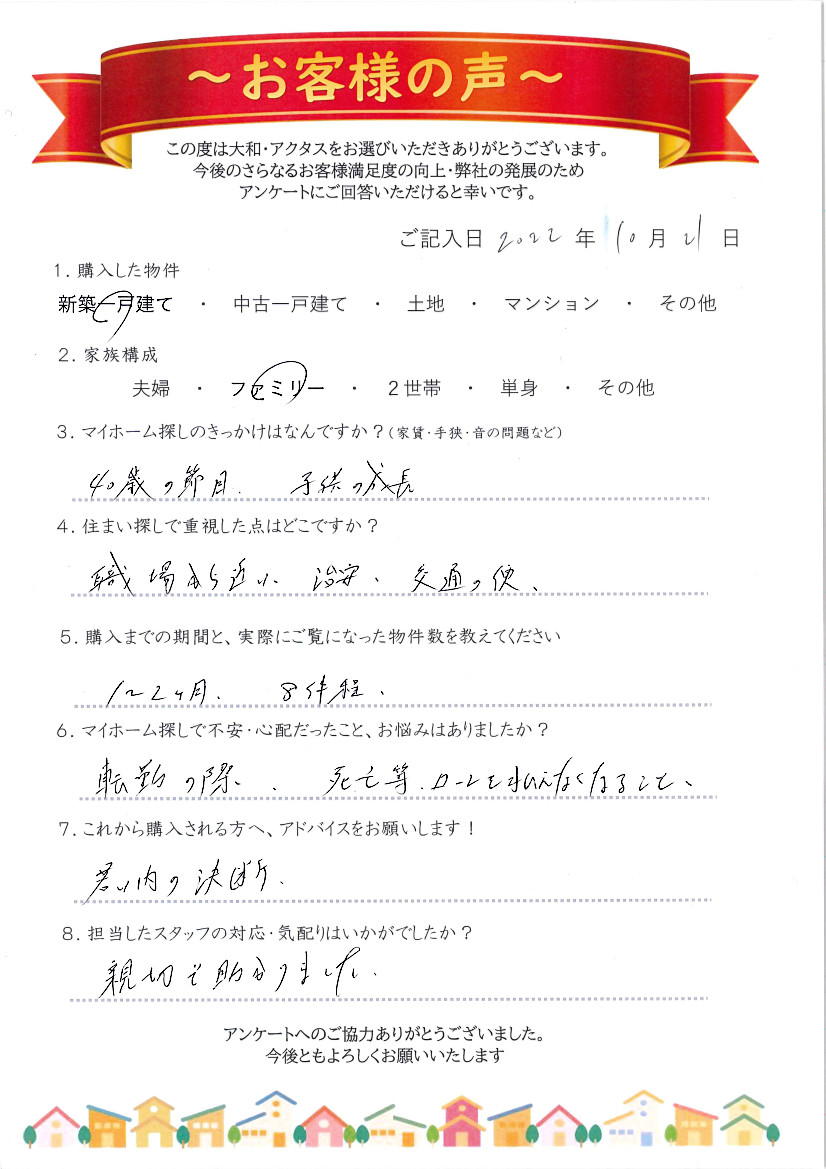 ～お客様の声～
この度は大和・アクタスをお選びいただきありがとうございます。
今後のさらなるお客様満足度の向上・弊社の発展のため
アンケートにご回答いただけると幸いです。
ご記入日 2022 年 10 月 21 日
1．購入した物件
新築一戸建て ・ 中古一戸建て ・ 土地 ・ マンション ・ その他
2．家族構成
夫婦 ・ ファミリー ・ 2世帯 ・ 単身 ・ その他
3．マイホーム探しのきっかけはなんですか？（家賃・手狭・音の問題など）
40歳の節目. 子供の成長
4．住まい探しで重視した点はどこですか？
職場から近い、治安、交通の便、
5．購入までの期間と、実際にご覧になった物件数を教えてください
1～2ヶ月. 8件程、
6．マイホーム探しで不安・心配だったこと、お悩みはありましたか？
転勤の際、. 死亡等.ローンを払えなくなること、
7．これから購入される方へ、アドバイスをお願いします！
若い内の決断.
8．担当したスタッフの対応・気配りはいかがでしたか？
親切で助かりました.
アンケートへのご協力ありがとうございました。
今後ともよろしくお願いいたします